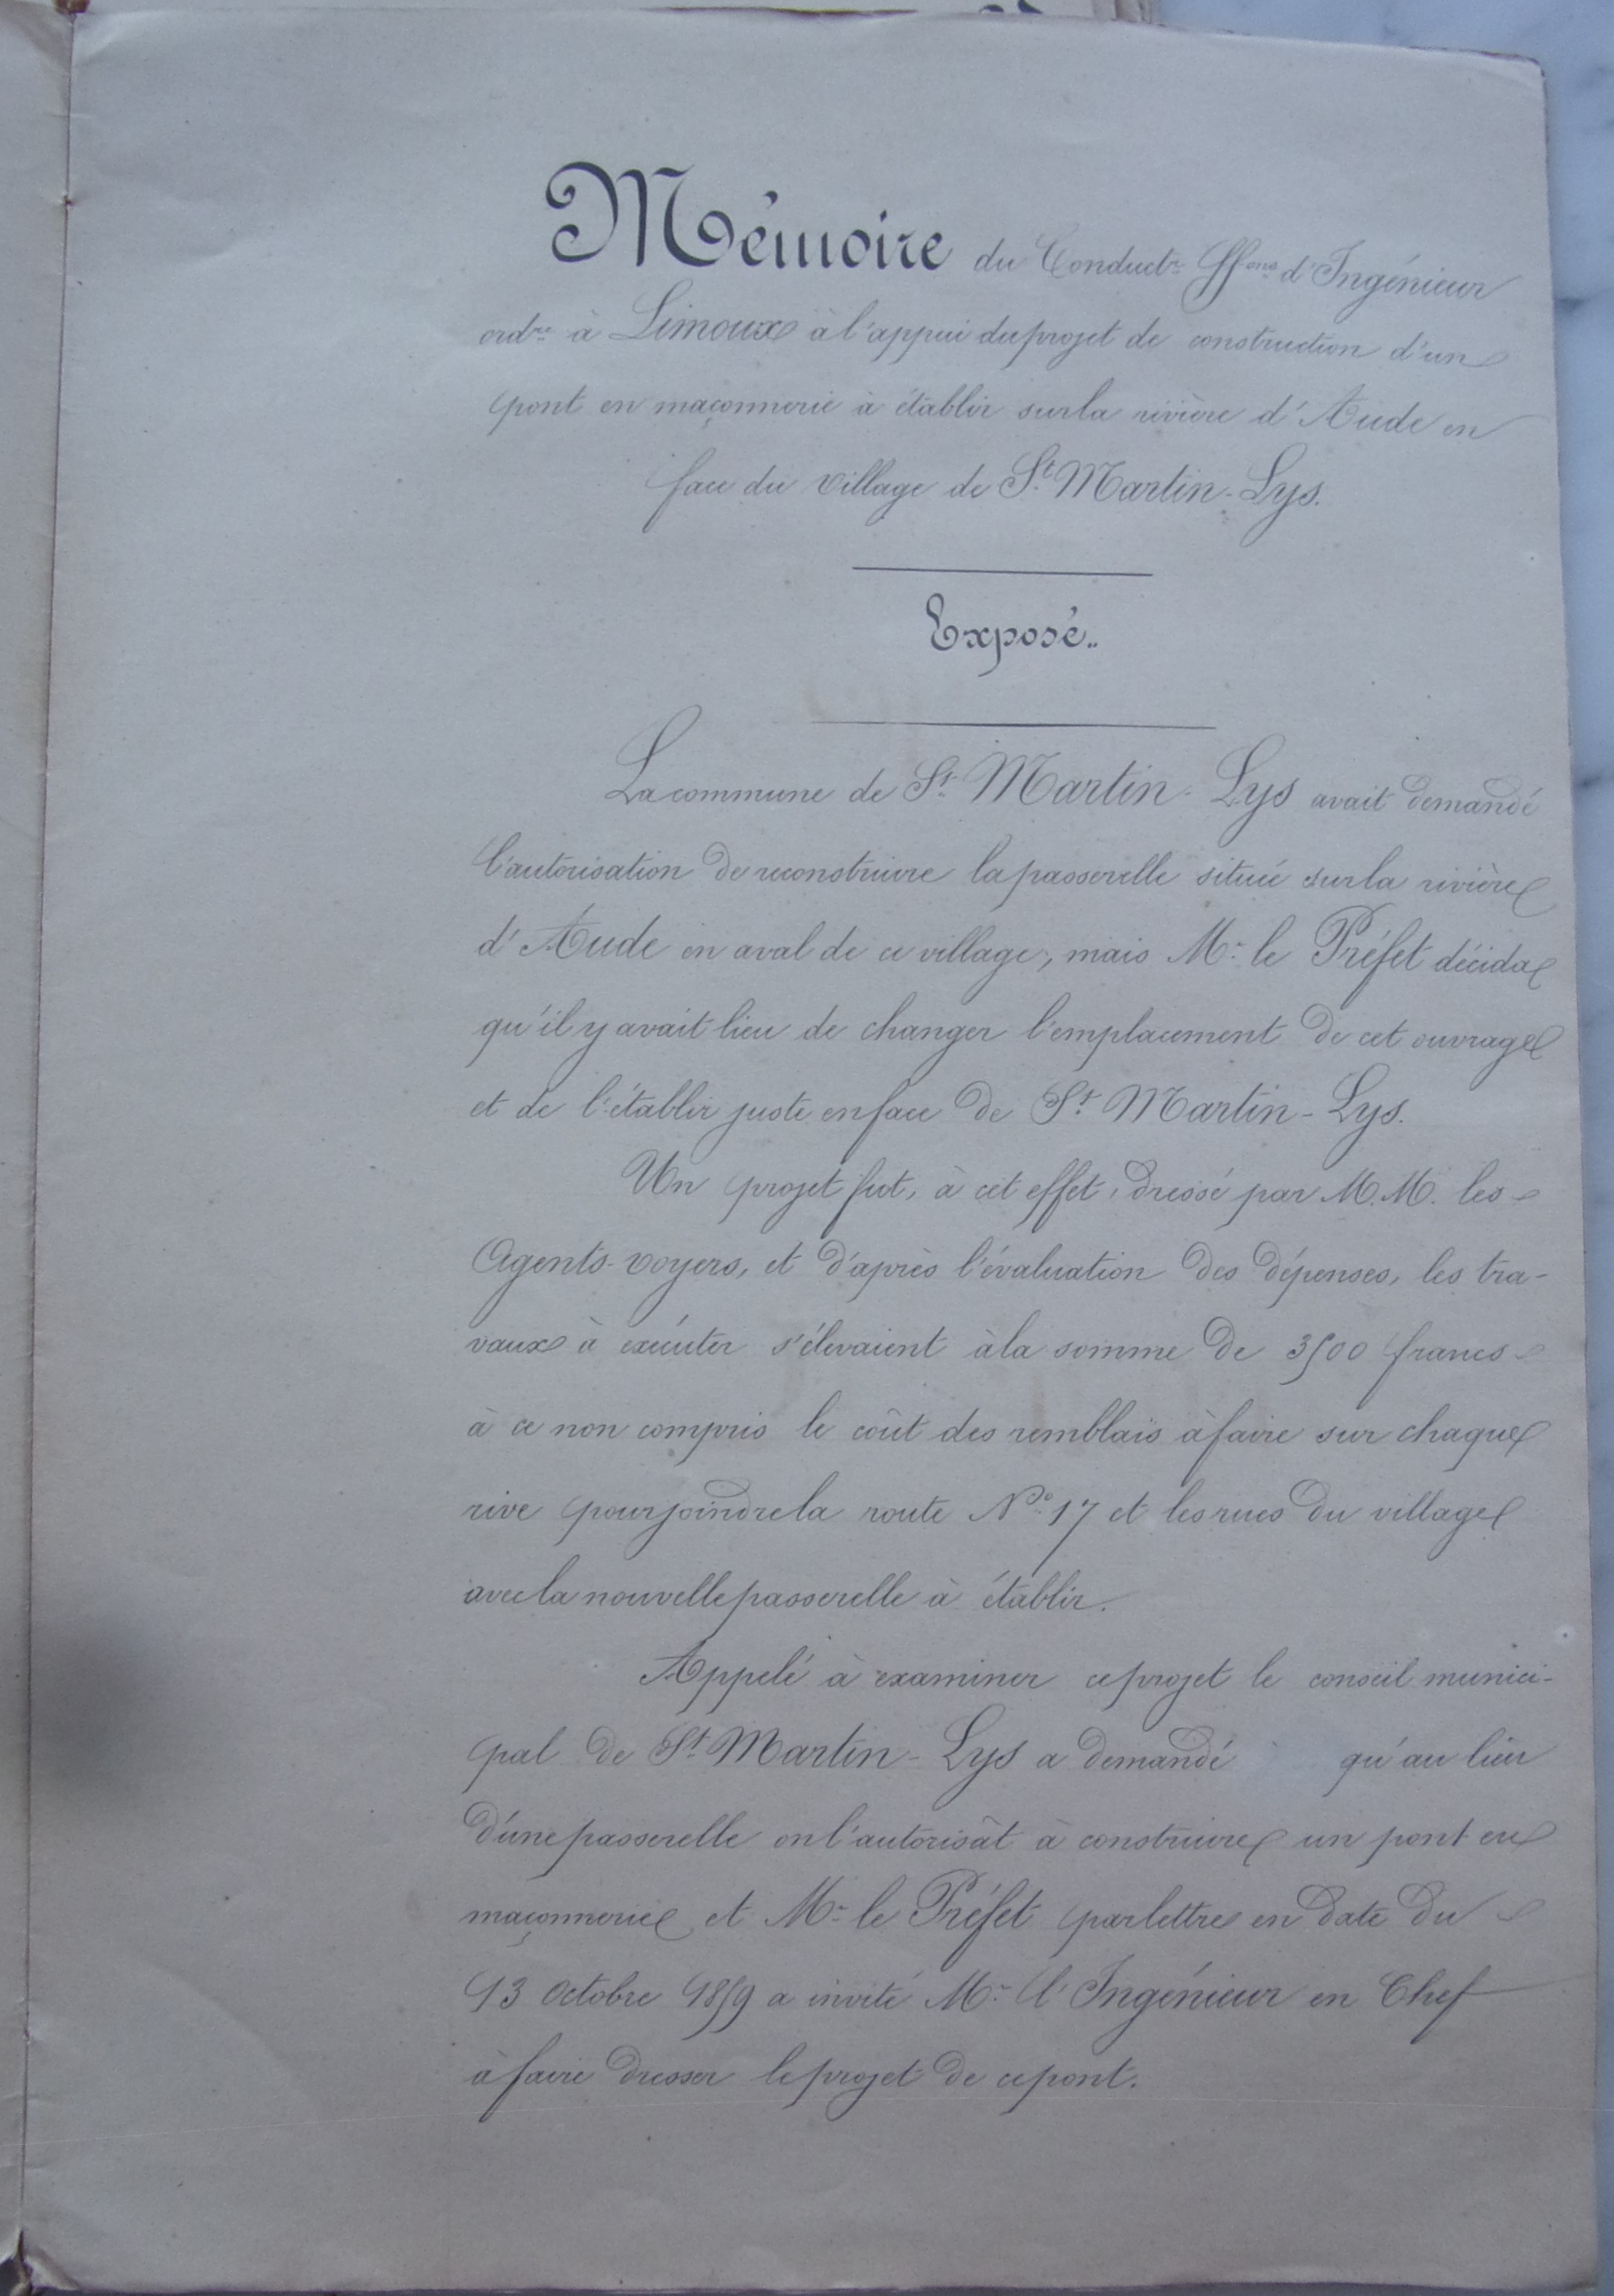 Mémoire du Conduct.r ff.ons d'Ingénieur
ord.re à Limoux à l'appui du projet de construction d'un
pont en maçonnerie à établir sur la rivière d'Aude en
face du village de S.t Martin-Lys.
Exposé..
La commune de S.t Martin-Lys avait demandé
l'autorisation de reconstruire la passerelle située sur la rivière
d'Aude en aval de ce village, mais M.r le Préfet décida
qu'il y avait lieu de changer l'emplacement de cet ouvrage
et de l'établir juste en face de S.t Martin-Lys.
Un projet fut, à cet effet, dressé par M.M. les
Agents-voyers, et d'après l'évaluation des dépenses, les tra-
vaux à exécuter s'élevaient à la somme de 3500 francs
à ce non compris le coût des remblais à faire sur chaque
rive pour joindre la route N.o 17 et les rues du village
avec la nouvelle passerelle à établir.
Appelé à examiner ce projet le conseil munici-
pal de S.t Martin-Lys a demandé qu'au lieu
d'une passerelle on l'autorisât à construire un pont en
maçonnerie et M.r le Préfet par lettre en date du
13 Octobre 1859 a invité M.r l'Ingénieur en Chef
à faire dresser le projet de ce pont.